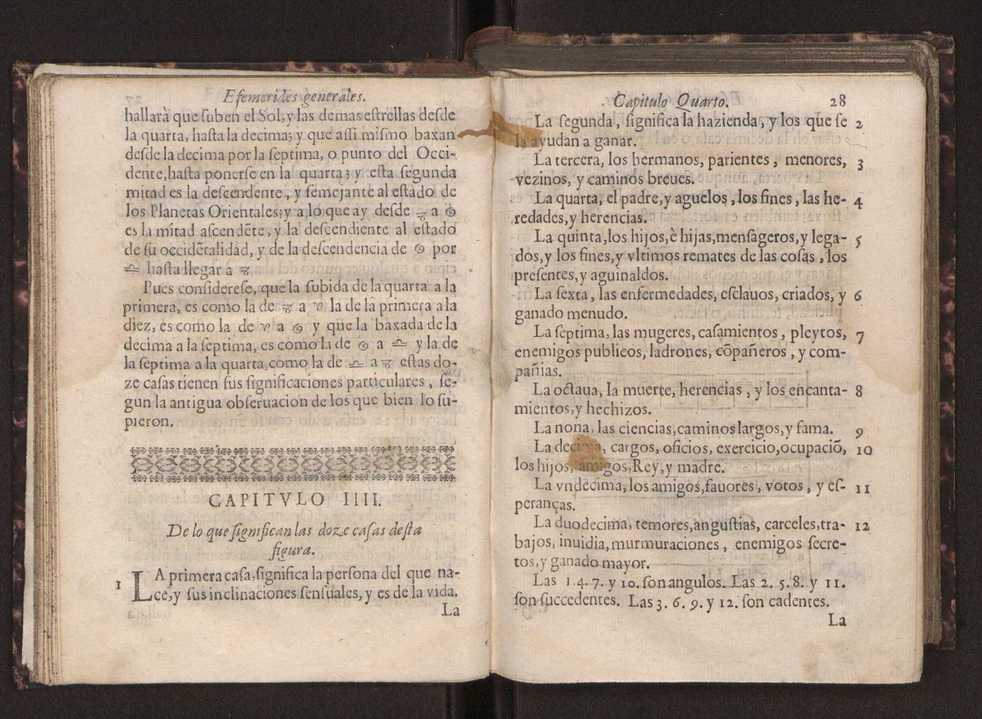 Efemerides generales.
hallarà que suben el Sol, y las demas estrellas desde
la quarta, hasta la decima; y que assi mismo baxan
desde la decima por la septima, o punto del Occi-
dente, hasta ponerse en la quarta; y esta segunda
mitad es la descendente, y semejante al estado de
los Planetas Orientales; y a lo que ay desde ♑ a ♋
es la mitad ascendẽte, y la descendiente al estado
de su occidẽtalidad, y de la descendencia de ♋ por
♎ hasta llegar a ♑
Pues considerese, que la subida de la quarta a la
primera, es como la de ♑ a ♈ la de la primera a la
diez, es como la de ♈ a ♋ y que la baxada de la
decima a la septima, es como la de ♋ a ♎ y la de
la septima a la quarta, como la de ♎ a ♑ estas do-
ze casas tienen sus significaciones particulares, se-
gun la antigua obseruacion de los que bien lo su-
pieron.
CAPITVLO IIII.
De lo que significan las doze casas desta
figura.
1 LA primera casa, significa la persona del que na-
ce, y sus inclinaciones sensuales, y es de la vida.
La
Capitulo Quarto. 28
La segunda, significa la hazienda, y los que se 2
la ayudan a ganar.
La tercera, los hermanos, parientes, menores, 3
vezinos, y caminos breues.
La quarta, el padre, y aguelos, los fines, las he- 4
redades, y herencias.
La quinta, los hijos, è hijas, mensageros, y lega- 5
dos, y los fines, y vltimos remates de las cosas, los
presentes, y aguinaldos.
La sexta, las enfermedades, esclauos, criados, y 6
ganado menudo.
La septima, las mugeres, casamientos, pleytos, 7
enemigos publicos, ladrones, cõpañeros, y com-
pañias.
La octaua, la muerte, herencias, y los encanta- 8
mientos, y hechizos.
La nona, las ciencias, caminos largos, y fama. 9
La decima, cargos, oficios, exercicio, ocupaciõ, 10
los hijos, amigos, Rey, y madre.
La vndecima, los amigos, fauores, votos, y es- 11
peranças.
La duodecima, temores, angustias, carceles, tra- 12
bajos, inuidia, murmuraciones, enemigos secre-
tos, y ganado mayor.
Las 1. 4. 7. y 10. son angulos. Las 2. 5. 8. y 11.
son succedentes. Las 3. 6. 9. y 12. son cadentes.
La